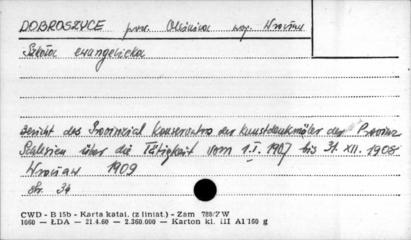 DOBROSZYCE pow. Oleśnica woj. Wrocław
Szkoła ewangelicka
Bericht des Provinzial Konservators der Kunstdenkmäler der Provinz
Schlesien über die Tätigkeit vom 1.I. 1907 bis 31. XII. 1908
Wrocław 1909
str. 34
CWD - B 15b - Karta katal. (z liniat.) - Zam 788/ZW
1060 - ŁDA - 21.4.60 - 2.360.000 - Karton kl. III A1/160 g